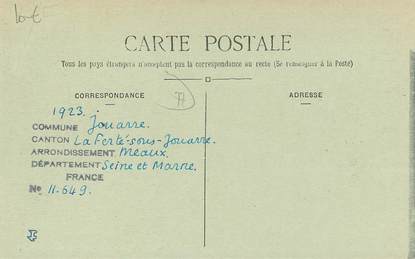 10 €
CARTE POSTALE
Tous les pays étrangers n'acceptent pas la correspondance au recto (Se renseigner à la Poste)
CORRESPONDANCE
ADRESSE
1923.
COMMUNE Jouarre.
CANTON La Ferté-sous-Jouarre.
ARRONDISSEMENT Meaux.
DÉPARTEMENT Seine et Marne.
FRANCE
No 11.649.